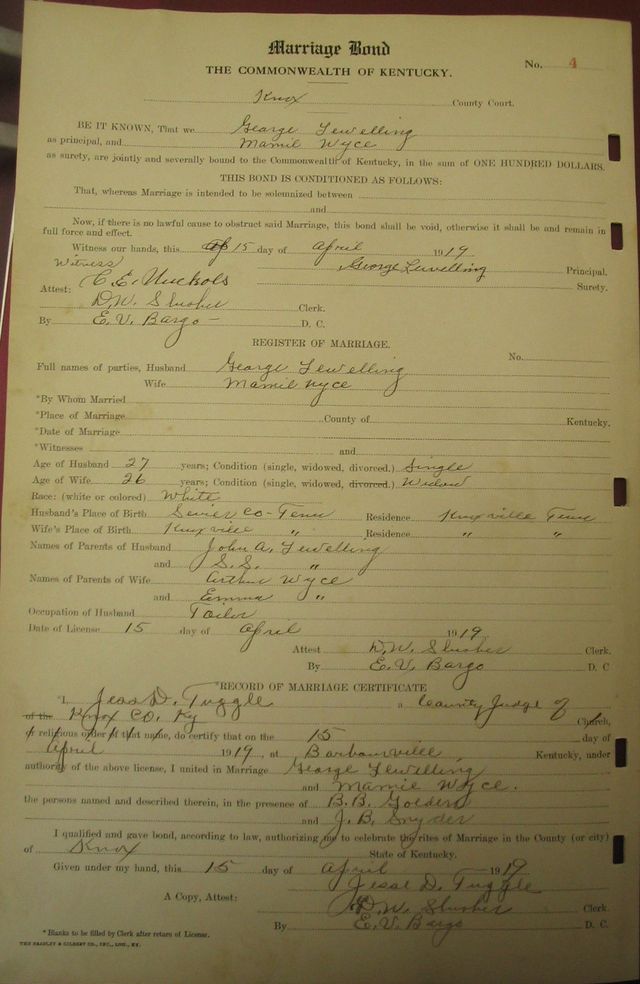 Marriage Bond
THE COMMONWEALTH OF KENTUCKY.
No. 4
Knox County Court.
BE IT KNOWN, That we George Lewelling
as principal, and Mamie Wyce
as surety, are jointly and severally bound to the Commonwealth of Kentucky, in the sum of ONE HUNDRED DOLLARS.
THIS BOND IS CONDITIONED AS FOLLOWS:
That, whereas Marriage is intended to be solemnized between
and
Now, if there is no lawful cause to obstruct said Marriage, this bond shall be void, otherwise it shall be and remain in
full force and effect.
Witness our hands, this 15 day of April 1919
Witness George Lewelling Principal.
C. E. Nuckols Surety.
Attest: D. W. Slusher Clerk.
By E. V. Bargo D. C.
REGISTER OF MARRIAGE.
No.
Full names of parties, Husband George Lewelling
Wife Mamie Wyce
*By Whom Married
*Place of Marriage County of Kentucky.
*Date of Marriage
*Witnesses and
Age of Husband 27 years; Condition (single, widowed, divorced.) Single
Age of Wife 26 years; Condition (single, widowed, divorced.) Widow
Race: (white or colored) White
Husband's Place of Birth Sevier Co-Tenn Residence Knoxville Tenn
Wife's Place of Birth Knoxville " Residence " "
Names of Parents of Husband John A. Lewelling
and S. S. "
Names of Parents of Wife Arthur Wyce
and Emma "
Occupation of Husband Tailor
Date of License 15 day of April 1919
Attest D. W. Slusher Clerk.
By E. V. Bargo D. C
*RECORD OF MARRIAGE CERTIFICATE
I, Jess D. Tuggle a County Judge of
of the Knox Co. Ky Church,
or religious order of that name, do certify that on the 15 day of
April 1919, at Barbourville, Kentucky, under
authority of the above license, I united in Marriage George Lewelling
and Mamie Wyce.
the persons named and described therein, in the presence of B. B. Golden
and J. B. Snyder
I qualified and gave bond, according to law, authorizing me to celebrate the rites of Marriage in the County (or city)
of Knox State of Kentucky.
Given under my hand, this 15 day of April 1919
Jesse D. Tuggle
A Copy, Attest: D. W. Slusher Clerk.
By E. V. Bargo D. C.
* Blanks to be filled by Clerk after return of License.
THE BRADLEY & GILBERT CO., INC., LOU., KY.